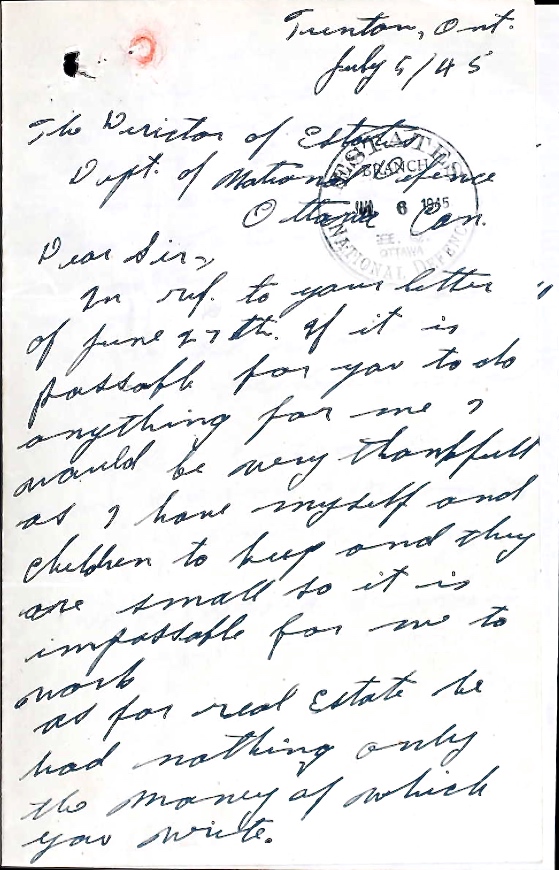 Trenton, Ont.
July 5/45
The Dirictor of Estates
Dept. of National Defence
Ottawa Can.
ESTATES
BRANCH
6 1945
OTTAWA
NATIONAL DEFENCE
Dear Sir,
In ref. to your letter
of June 27th. If it is
possable for you to do
anything for me I
would be very thankfull
as I have myself and
children to keep and they
are small so it is
impossable for me to
work
as for real Estate he
had nothing only
the money of which
you write.